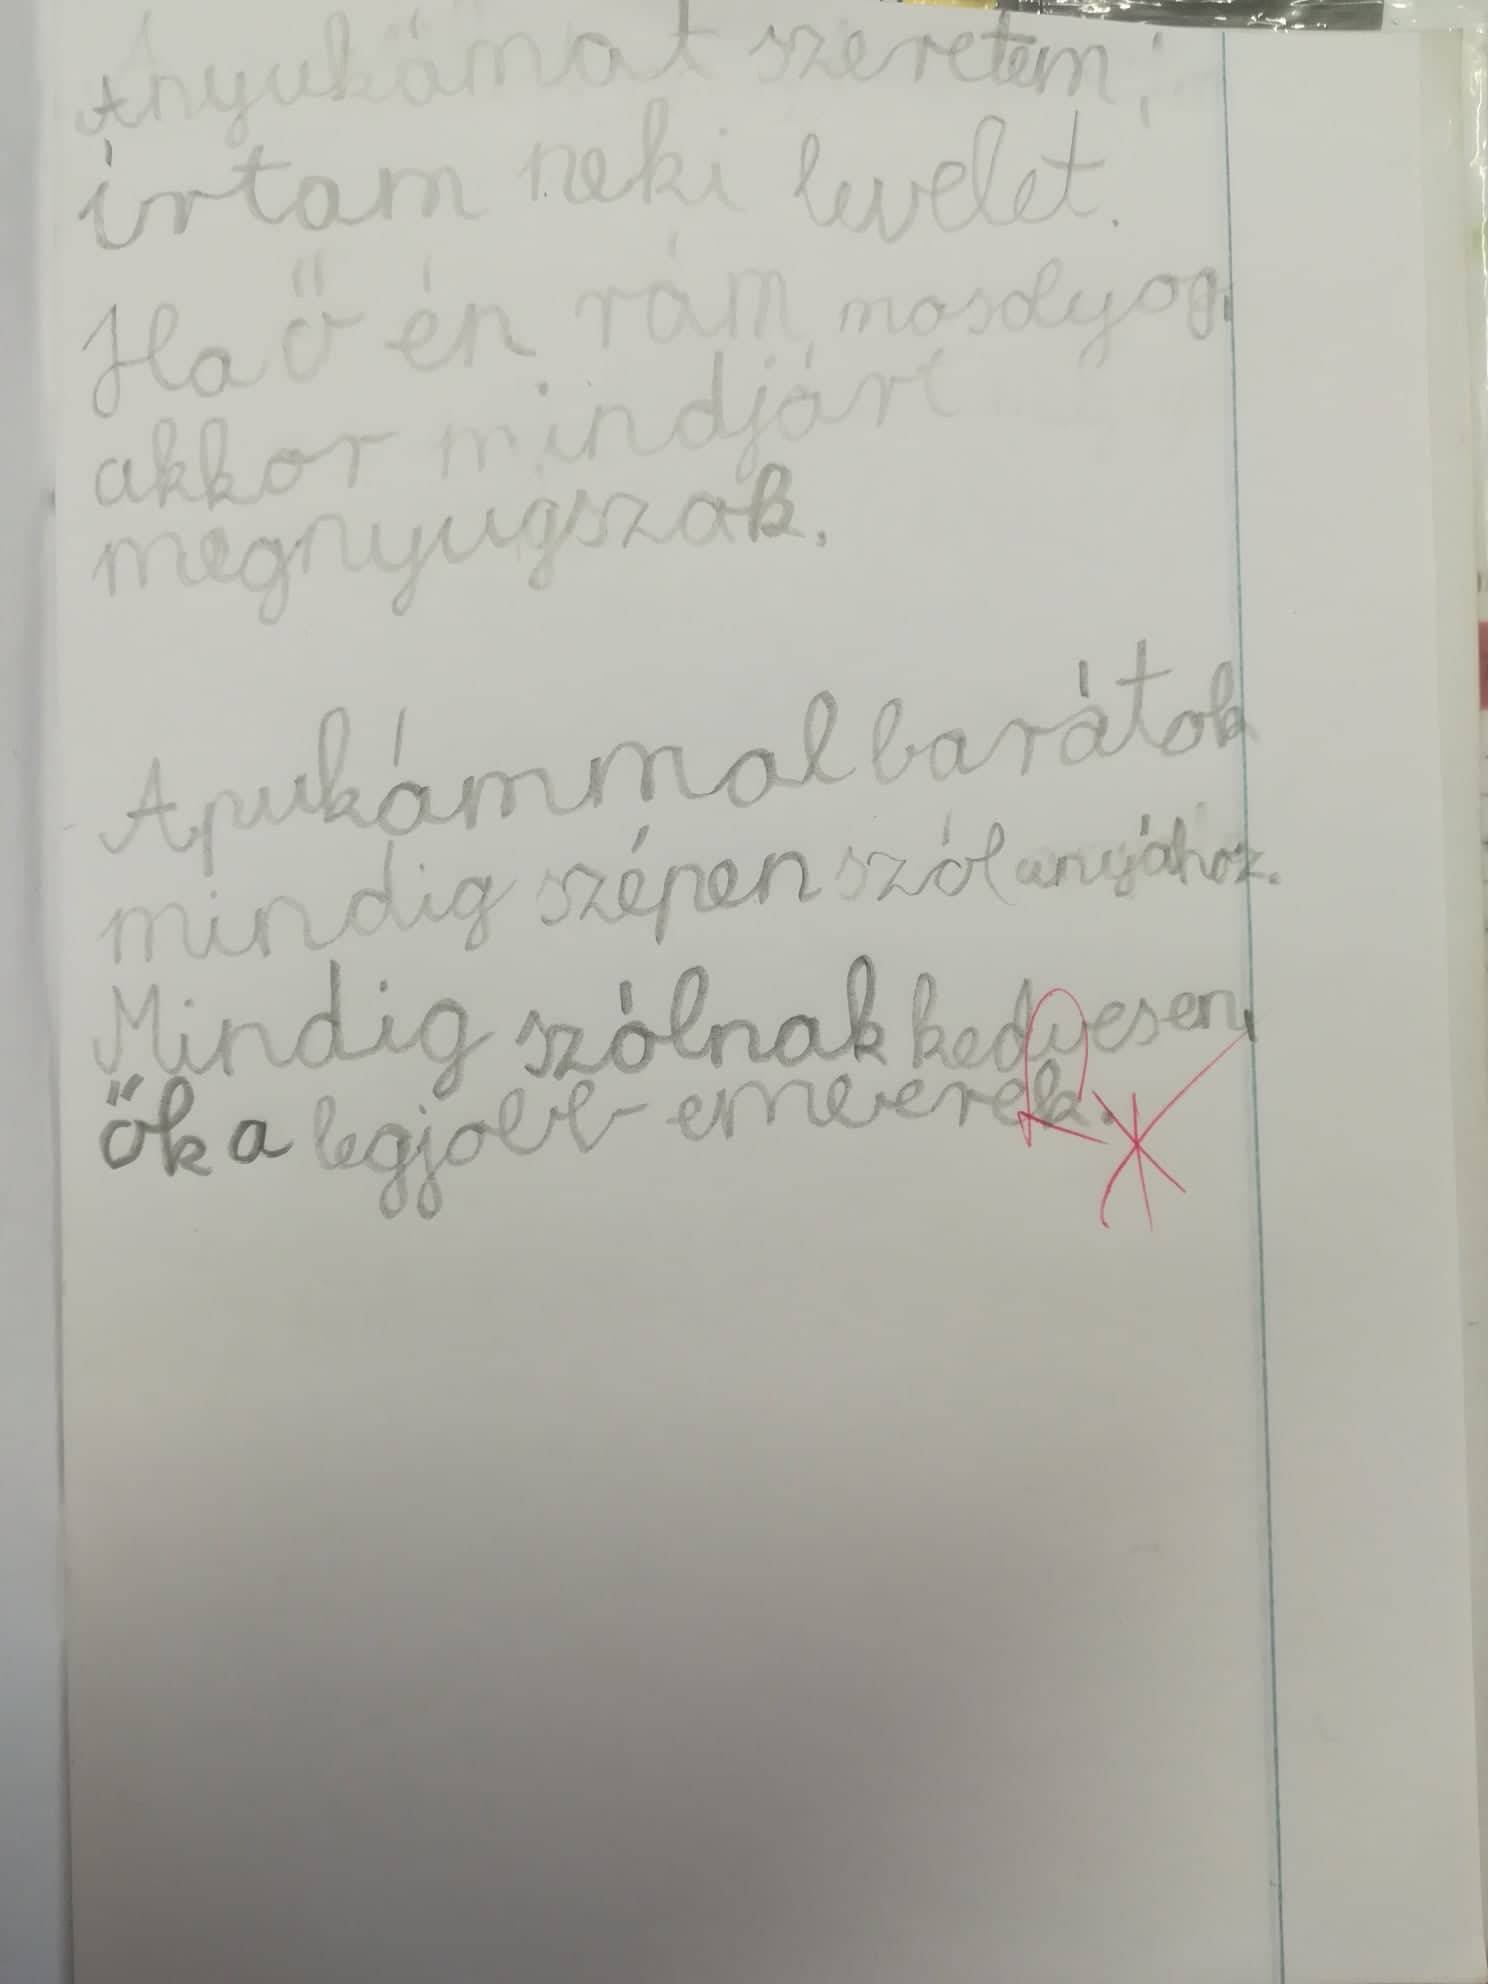 Anyukámat szeretem,
írtam neki levelet.
Ha ő én rám mosolyog,
akkor mindjárt
megnyugszak.
Apukámmal barátok
mindig szépen szól anyához.
Mindig szólnak kedvesen,
ők a legjobb emberek.